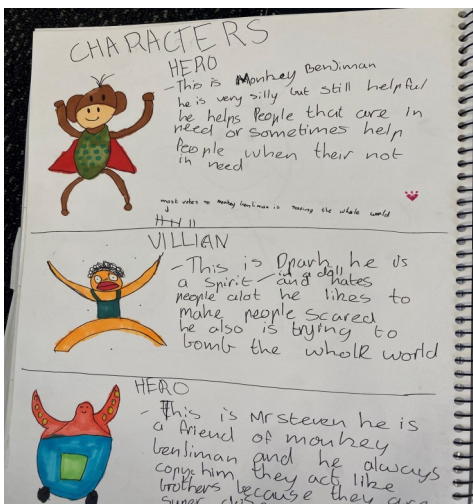 CHARACTERS
HERO
- This is Monkey Benjiman
he is very silly but still helpful
he helps People that are in
need or sometimes help
People when their not
in need
most votes to monkey benjiman is the whole world
VILLIAN
- This is he is
a spirit in a doll and hates
people alot he likes to
make people scared
he also is trying to
bomb the whole world
HERO
- This is Mr steven he is
a friend of monkey
benjiman and he always
copys him they act like
brothers because they are
super